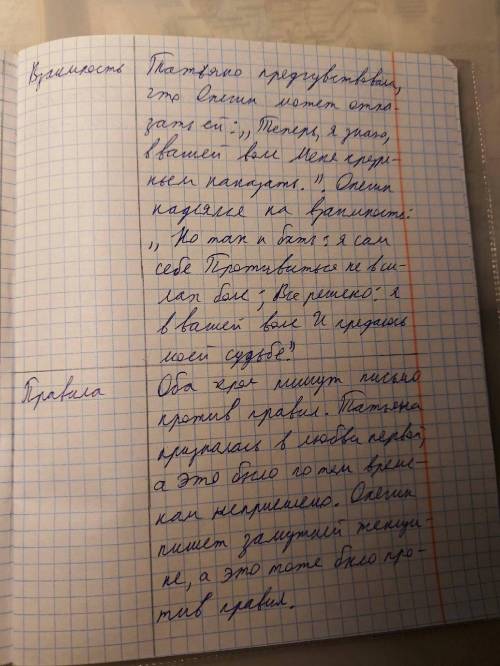 Взаимность
Татьяна предчувствовала,
что Онегин может отка-
зать ей: „Теперь, я знаю,
в вашей воле Меня презре-
ньем наказать.". Онегин
надеялся на взаимность:
„Но так и быть: я сам
себе Противиться не в си-
лах боле; Все решено: я
в вашей воле И предаюсь
моей судьбе."
Правила
Оба героя пишут письмо
против правил. Татьяна
призналась в любви первой,
а это было по тем време-
нам неприлично. Онегин
пишет замужней женщи-
не, а это тоже было про-
тив правил.